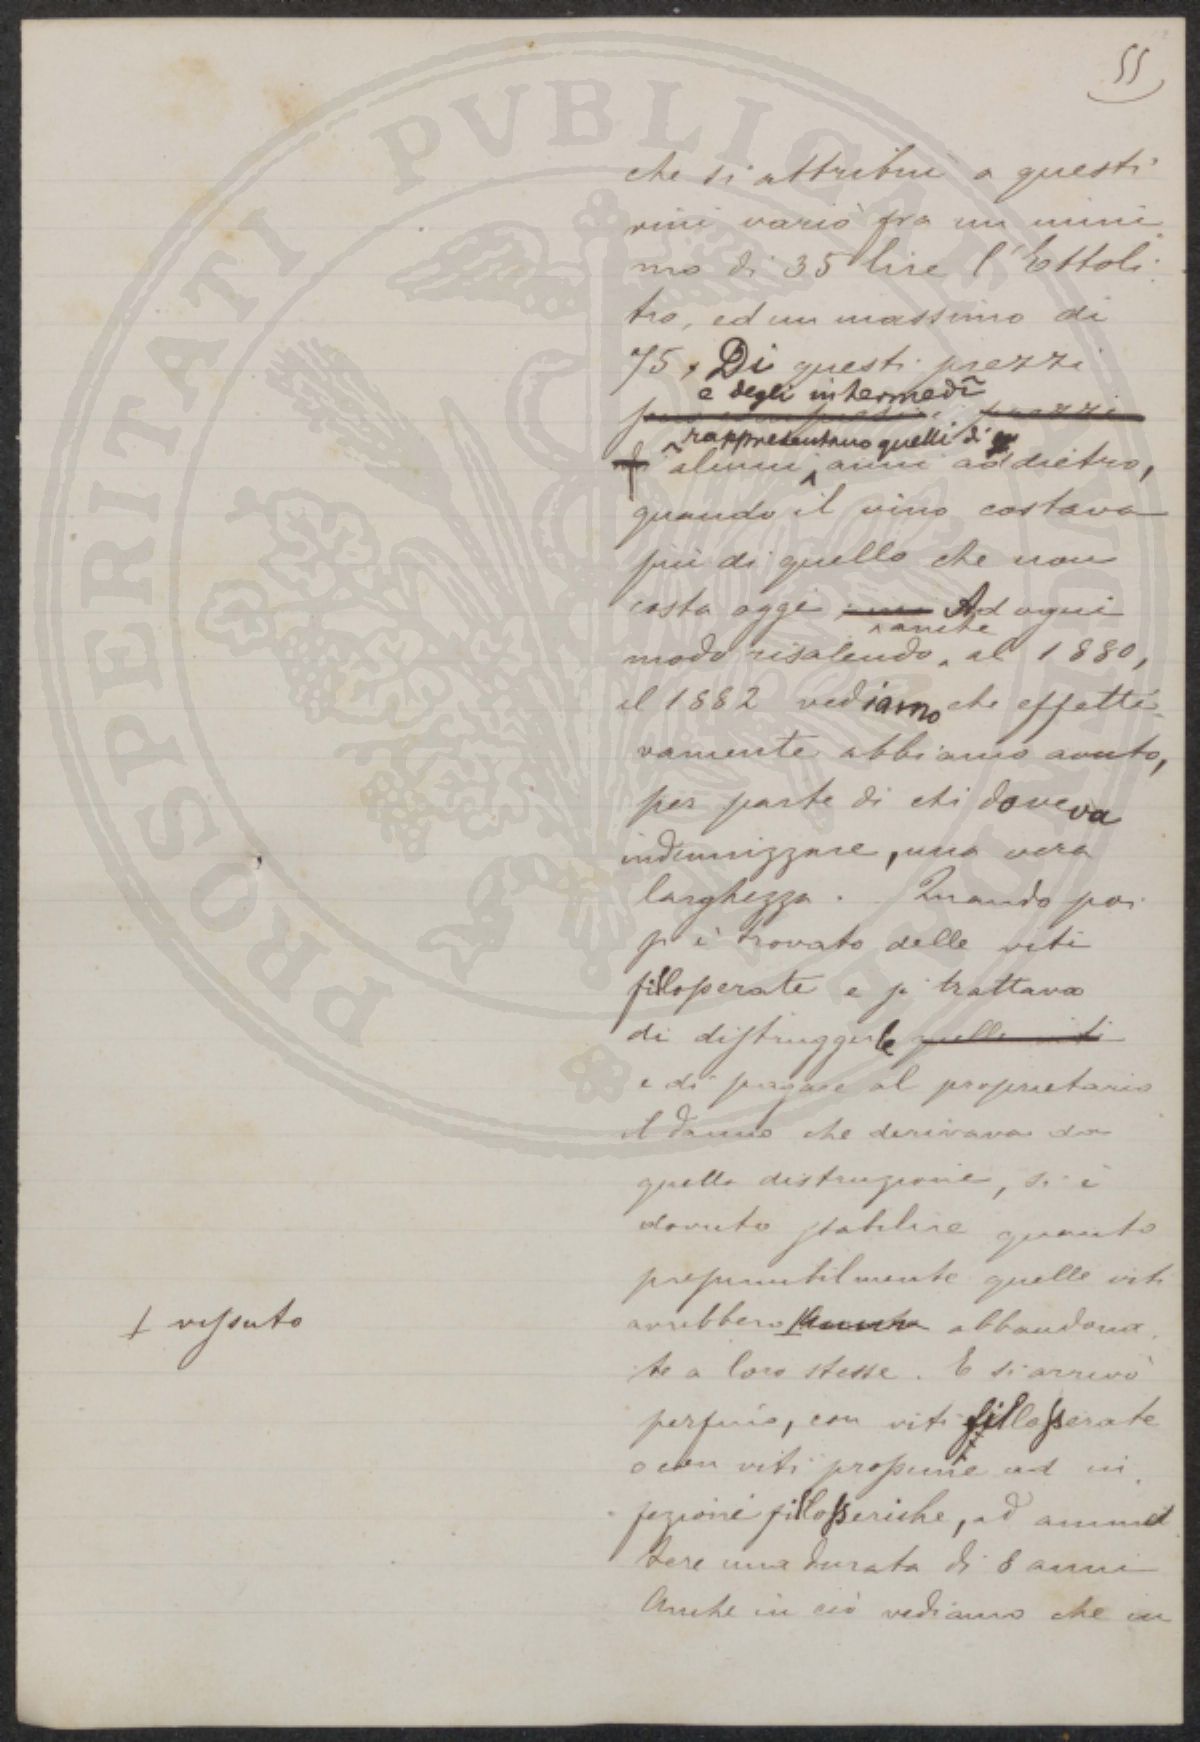 55
PROSPERITATI PVBLICAE
che si attribuì a questi
vini variò fra un mini
mo di 35 lire l'Ettoli
tro, ed un massimo di
75, Di questi prezzi
e degli intermedî
prezzi
rappresentano quelli di
alcuni anni addietro,
quando il vino costava
più di quello che non
costa oggi Ad ogni
anche
modo risalendo al 1880,
il 1882 vediamo che effetti
vamente abbiamo avuto,
per parte di chi doveva
indennizzare, una vera
larghezza. Quando poi
si è trovato delle viti
fillosserate e si trattava
di distruggerle quelle viti
e di pagare al proprietario
il danno che derivava da
quella distruzione, si è
dovuto stabilire quanto
presumibilmente quelle viti
avrebbero abbandona
+ vissuto
te a loro stesse. E si arrivò
persino, con viti fillosserate
o con viti prossime ad in
fezioni fillosseriche, ad ammet
tere una durata di 8 anni
Anche in ciò vediamo che in